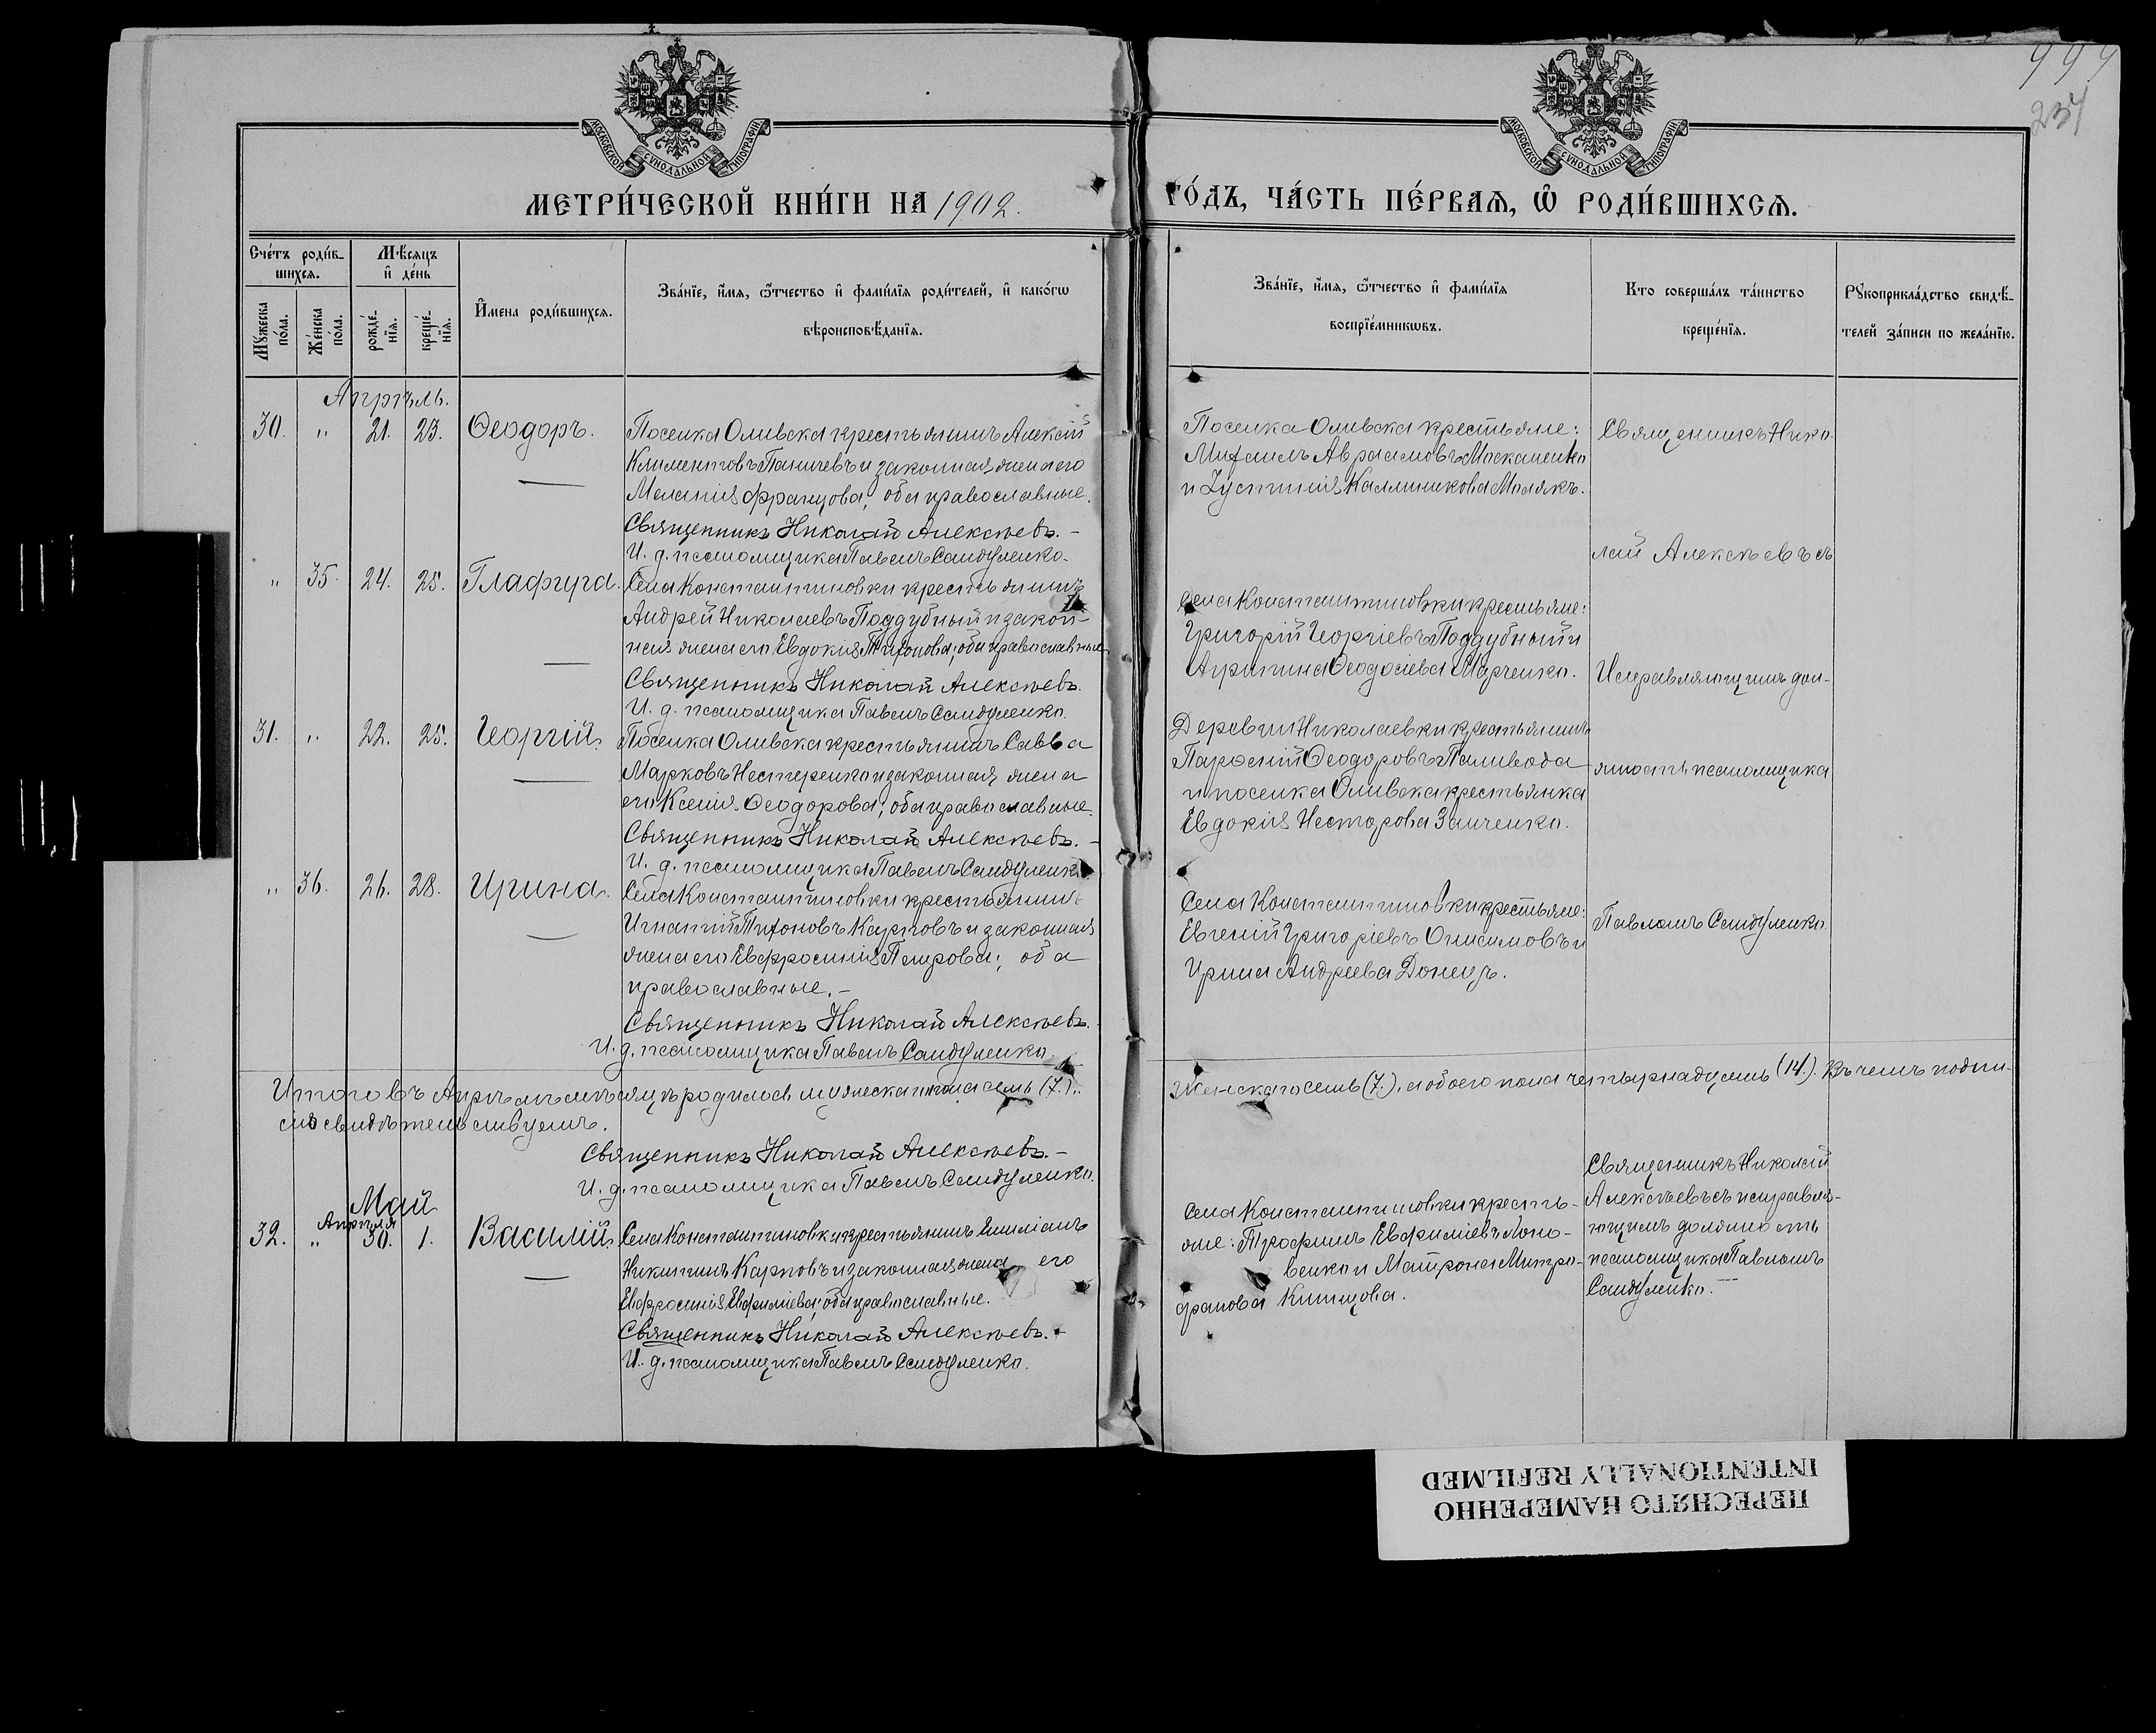 999
234
МОСКОВСКОЙ СѴНОДАЛЬНОЙ ТИПОГРАФІИ
МОСКОВСКОЙ СѴНОДАЛЬНОЙ ТИПОГРАФІИ
МЕТРИ́ЧЕСКОЙ КНИ́ГИ НА 1902.
ГО́ДЪ, ЧА́СТЬ ПЕ́РВАѦ, Ѡ҆ РОДИ́ВШИХСѦ.
Сче́тъ роди́в-
шихсѧ.
Мꙋ́жеска по́ла.
Же́нска по́ла.
Мѣ́сѧцъ
и҆ де́нь
рожде́-
нїѧ.
креще́-
нїѧ.
И҆мена роди́вшихсѧ.
Зва́нїе, и҆́мѧ, ѻ҆́тчество и҆ фами́лїѧ роди́телей, и҆ како́гѡ
вѣроисповѣ́данїѧ.
Зва́нїе, и҆́мѧ, ѻ҆́тчество и҆ фами́лїѧ
воспрїе́мникѡвъ.
Кто соверша́лъ та́инство
креще́нїѧ.
Рꙋкоприкла́дство свидѣ́-
телей за́писи по жела́нїю.
Апрѣль.
30. " 21. 23. Ѳеодоръ.
Поселка Оливска крестьянинъ Алексій
Климентовъ Паничевъ и законная жена его
Меланія Францова; оба православные.
Священникъ Николай Алексѣевъ. -
И. д. псаломщика Павелъ Сандуленко.
Поселка Оливска крестьяне:
Михаилъ Авраамовъ Москаленко
и Іустинія Каллиникова Молякъ.
Священникъ Нико-
лай Алексѣевъ съ
" 35. 24. 25. Глафира.
Села Константиновки крестьянинъ
Андрей Николаевъ Поддубный и закон-
ная жена его Евдокія Тихонова; оба православные
Священникъ Николай Алексѣевъ.
И. д. псаломщика Павелъ Сандуленко.
Села Константиновки крестьяне:
Григорій Георгіевъ Поддубный и
Агрипина Ѳеодосіева Марченко.
Исправляющимъ дол-
31. " 22. 25. Георгій.
Поселка Оливска крестьянинъ Савва
Марковъ Нестеренко и законная жена
его Ксенія Ѳеодорова; оба православные.
Священникъ Николай Алексѣевъ. -
И. д. псаломщика Павелъ Сандуленко.
Деревни Николаевки крестьянинъ
Парѳеній Ѳеодоровъ Паливода
и поселка Оливска крестьянка
Евдокія Несторова Заиченко.
жность псаломщика
" 36. 26. 28. Ирина.
Села Константиновки крестьянинъ
Игнатій Тихоновъ Карповъ и законная
жена его Евфросинія Петрова; оба
православные. -
Священникъ Николай Алексѣевъ.
И. д. псаломщика Павелъ Сандуленко.
Села Константиновки крестьяне:
Евгеній Григоріевъ Онисимовъ и
Ирина Андреева Донецъ.
Павломъ Сандуленко.
Итого въ Апрѣлѣ мѣсяцѣ родилось мужеска пола семь (7.).,
женскаго семь (7.), а обоего пола четырнадцать (14.). Въ чемъ подпи-
сью свидѣтельствуемъ.
Священникъ Николай Алексѣевъ. -
И. д. псаломщика Павелъ Сандуленко.
Май
Апрѣля
32. " 30. 1. Василій.
Села Константиновки крестьянинъ Емиліанъ
Никитинъ Карповъ и законная жена его
Евфросинія Евфиміева; оба православные.
Священникъ Николай Алексѣевъ. -
И. д. псаломщика Павелъ Сандуленко.
Села Константиновки кресть-
яне: Трофимъ Евфиміевъ Лоно-
венко и Матрона Митро-
фанова Китцова.
Священникъ Николай
Алексѣевъ съ исправля-
ющимъ должность
псаломщика Павломъ
Сандуленко. -
ПЕРЕСНЯТО НАМЕРЕННО
INTENTIONALLY REFILMED